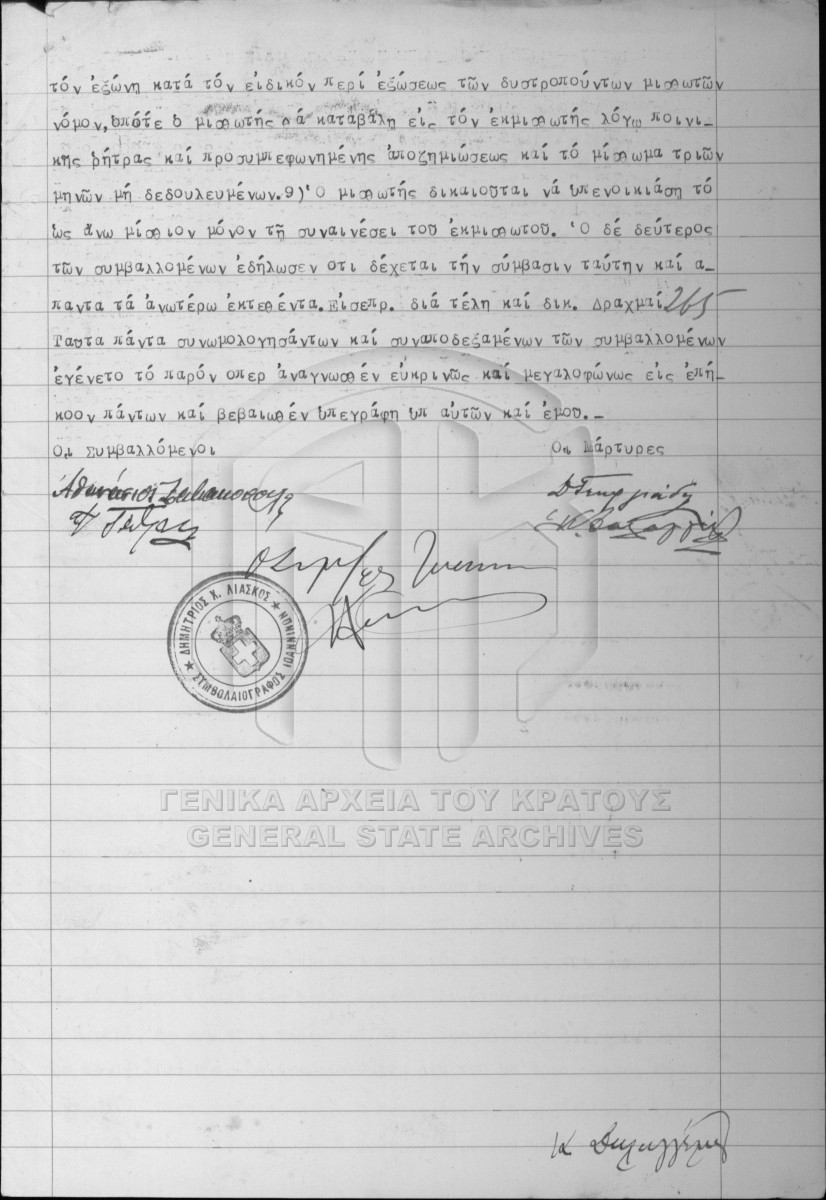 τόν ἐξώνη κατά τόν εἰδικόν περί ἐξώσεως τῶν δυστροπούντων μισθωτῶν
νόμον, ὁπότε ὁ μισθωτής θά καταβάλη εἰς τόν ἐκμισθωτής λόγῳ ποινι-
κῆς ρήτρας καί προσυμπεφωνημένης ἀποζημιώσεως καί τό μίσθωμα τριῶν
μηνῶν μή δεδουλευμένων. 9) Ὁ μισθωτής δικαιοῦται νά ὑπενοικιάση τό
ὡς ἄνω μίσθιον μόνον τῇ συναινέσει τοῦ ἐκμισθωτοῦ. Ὁ δέ δεύτερος
τῶν συμβαλλομένων ἐδήλωσεν οτι δέχεται τήν σύμβασιν ταύτην καί α-
παντα τά ἀνωτέρω ἐκτεθέντα. Εἰσεπρ. διά τέλη καί δικ. Δραχμαί 265
Ταῦτα πάντα συνωμολογησάντων καί συναποδεξαμένων τῶν συμβαλλομένων
ἐγένετο τό παρόν οπερ ἀναγνωσθέν εὐκρινῶς καί μεγαλοφώνως εἰς ἐπή-
κοον πάντων καί βεβαιωθέν ὑπεγράφη ὑπ αὐτῶν καί ἐμοῦ.-
Οι Συμβαλλόμενοι Οι Μάρτυρες
Ἀθανάσιος
ΔΗΜΗΤΡΙΟΣ Κ. ΛΙΑΣΚΟΣ
ΣΥΜΒΟΛΑΙΟΓΡΑΦΟΣ ΙΩΑΝΝΙΝΩΝ
ΓΕΝΙΚΑ ΑΡΧΕΙΑ ΤΟΥ ΚΡΑΤΟΥΣ
GENERAL STATE ARCHIVES